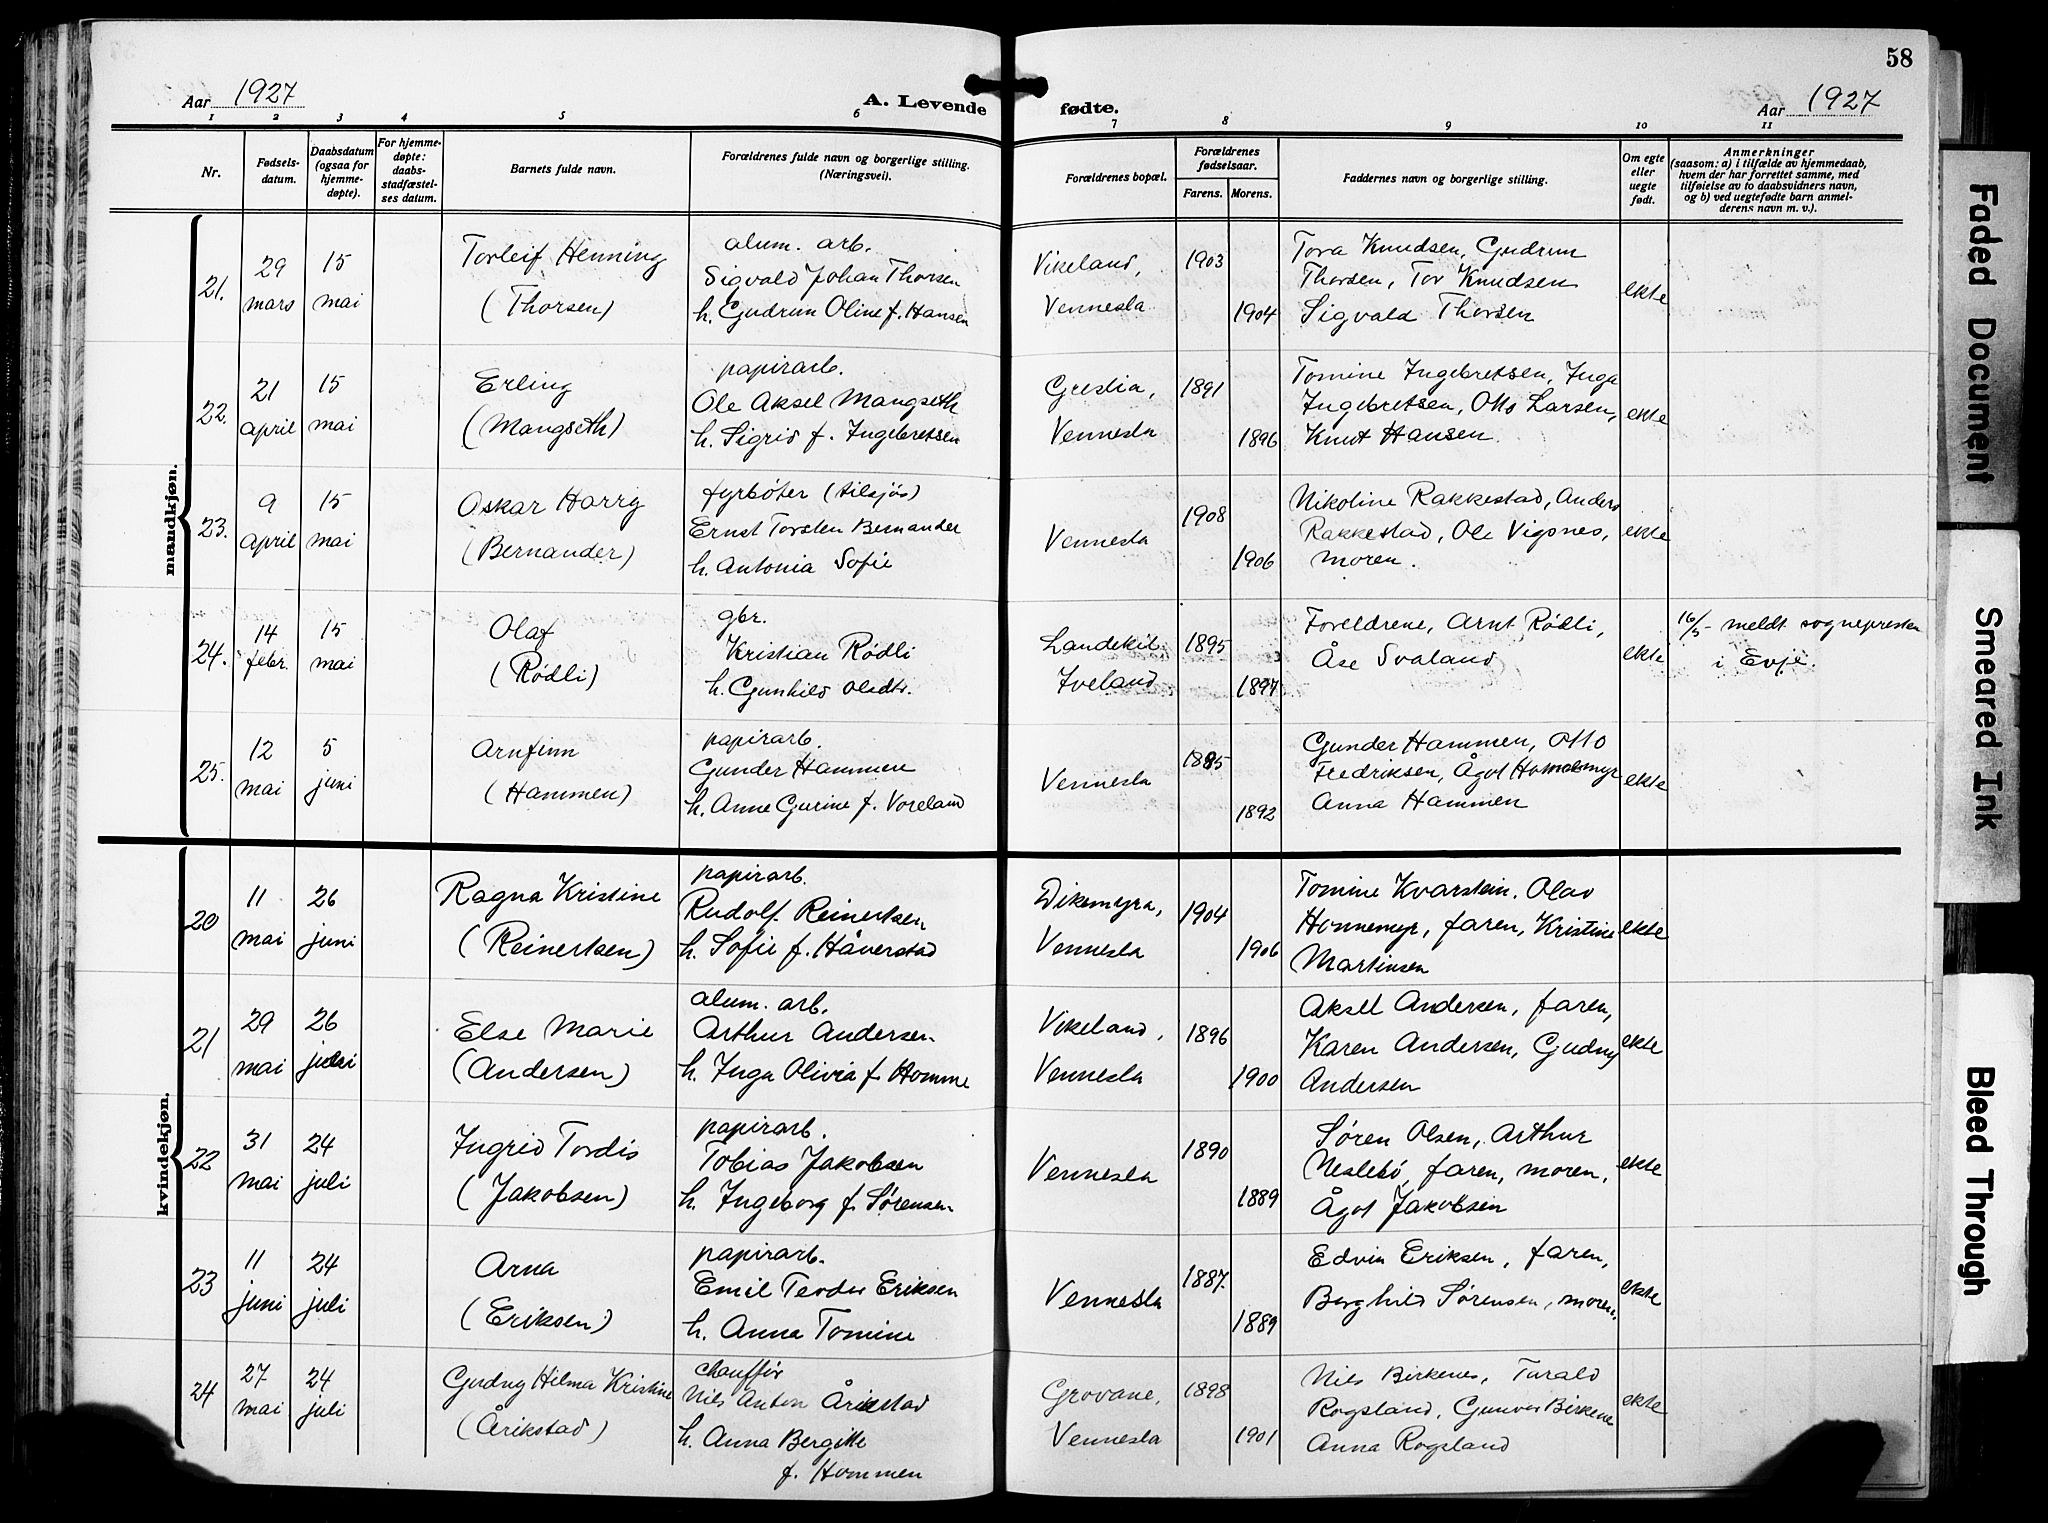 58
Aar 1927
A. Levende
fødte.
Aar 1927
1 2 3 4 5 6 7 8 9 10 11
Nr.
Fødsels-
datum.
Daabsdatum
(ogsaa for
hjemme-
døpte).
For hjemme-
døpte:
daabs-
stadfæstel-
ses datum.
Barnets fulde navn.
Forældrenes fulde navn og borgerlige stilling.
(Næringsvei).
Forældrenes bopæl.
Forældrenes
fødselsaar.
Farens. Morens.
Faddernes navn og borgerlige stilling.
Om egte
eller
uegte
født.
Anmerkninger
(saasom: a) i tilfælde av hjemmedaab,
hvem der har forrettet samme, med
tilføielse av to daabsvidners navn,
og b) ved uegtefødte barn anmel-
derens navn m. v.).
mandkjøn.
21.
29
mars
15
mai
Torleif Henning
(Thorsen)
alum. arb.
Sigvald Johan Thorsen
h. Gudrun Oline f. Hansen
Vikeland,
Vennesla
1903
1904
Tora Knudsen, Gudrun
Thorsen, Tor Knudsen
Sigvald Thorsen
ekte
22.
21
april
15
mai
Erling
(Mangseth)
papirarb.
Ole Aksel Mangseth
h. Sigrid f. Ingebretsen
Greslia,
Vennesla
1891
1896
Tomine Ingebretsen, Inga
Ingebretsen, Otto Larsen,
Knut Hansen
ekte
23.
9
april
15
mai
Oskar Harry
(Bernander)
fyrbøter (tilsjøs)
Ernst Torsten Bernander
h. Antonia Sofie
Vennesla
1908
1906
Nikoline Rakkestad, Anders
Rakkestad, Ole Vigsnes,
moren.
ekte
24.
14
febr.
15
mai
Olaf
(Rødli)
gbr.
Kristian Rødli
h. Gunhild Olsdtr.
Landekil
Iveland
1895
1897
Foreldrene, Arnt Rødli,
Åse Svaland
ekte
16/5 - meldt sognepresten
i Evje.
25.
12
mai
5
juni
Arnfinn
(Hammen)
papirarb.
Gunder Hammen
h. Anne Gurine f. Voreland
Vennesla
1895
1892
Gunder Hammen, Otto
Fredriksen, Ågot
Anna Hammen
ekte
kvindekjøn.
20
11
mai
26
juni
Ragna Kristine
(Reinertsen)
papirarb.
Rudolf Reinertsen
h. Sofie f. Håverstad
Dikemyra,
Vennesla
1904
1906
Tomine Kvarstein, Olav
Honnemyr, faren, Kristine
Martinsen
ekte
21
29
mai
26
juni
Else Marie
(Andersen)
alum. arb.
Arthur Andersen
h. Inga Olivia f. Homme
Vikeland,
Vennesla
1896
1900
Aksel Andersen, faren,
Karen Andersen, Gudny
Andersen
ekte
22
31
mai
24
juli
Ingrid Tordis
(Jakobsen)
papirarb.
Tobias Jakobsen
h. Ingeborg f. Sørensen
Vennesla
1890
1889
Søren Olsen, Arthur
Neslebø, faren, moren,
Ågot Jakobsen
ekte
23
11
juni
24
juli
Arna
(Eriksen)
papirarb.
Emil Teodor Eriksen
h. Anna Tomine
Vennesla
1887.
1889
Edvin Eriksen, faren,
Borghild Sørensen, moren.
ekte
24
27
mai
24
juli
Gudny Hilma Kristine
(Årikstad)
chauffør
Nils Anton Årikstad
h. Anna Bergitte
f. Hommen
Grovane,
Vennesla
1898
1901
Nils Birkenes, Turald
Rogsland, Gunvor Birkenes
Anna Rogsland
ekte
Faded Document
Smeared Ink
Bleed Through